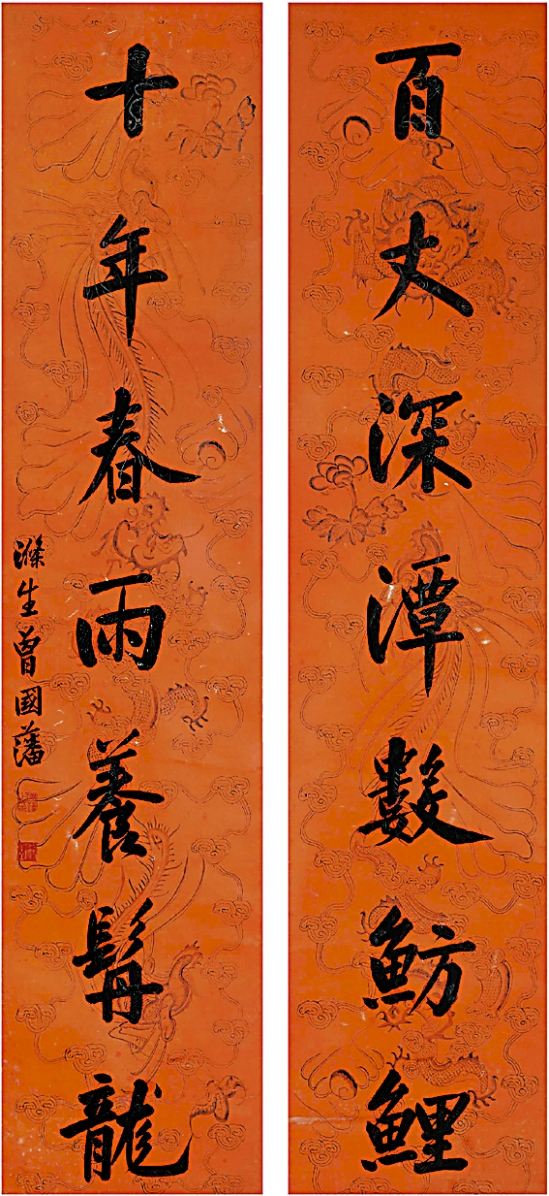 百丈深潭數魴鯉
十年春雨養髯龍
滌生曾國藩